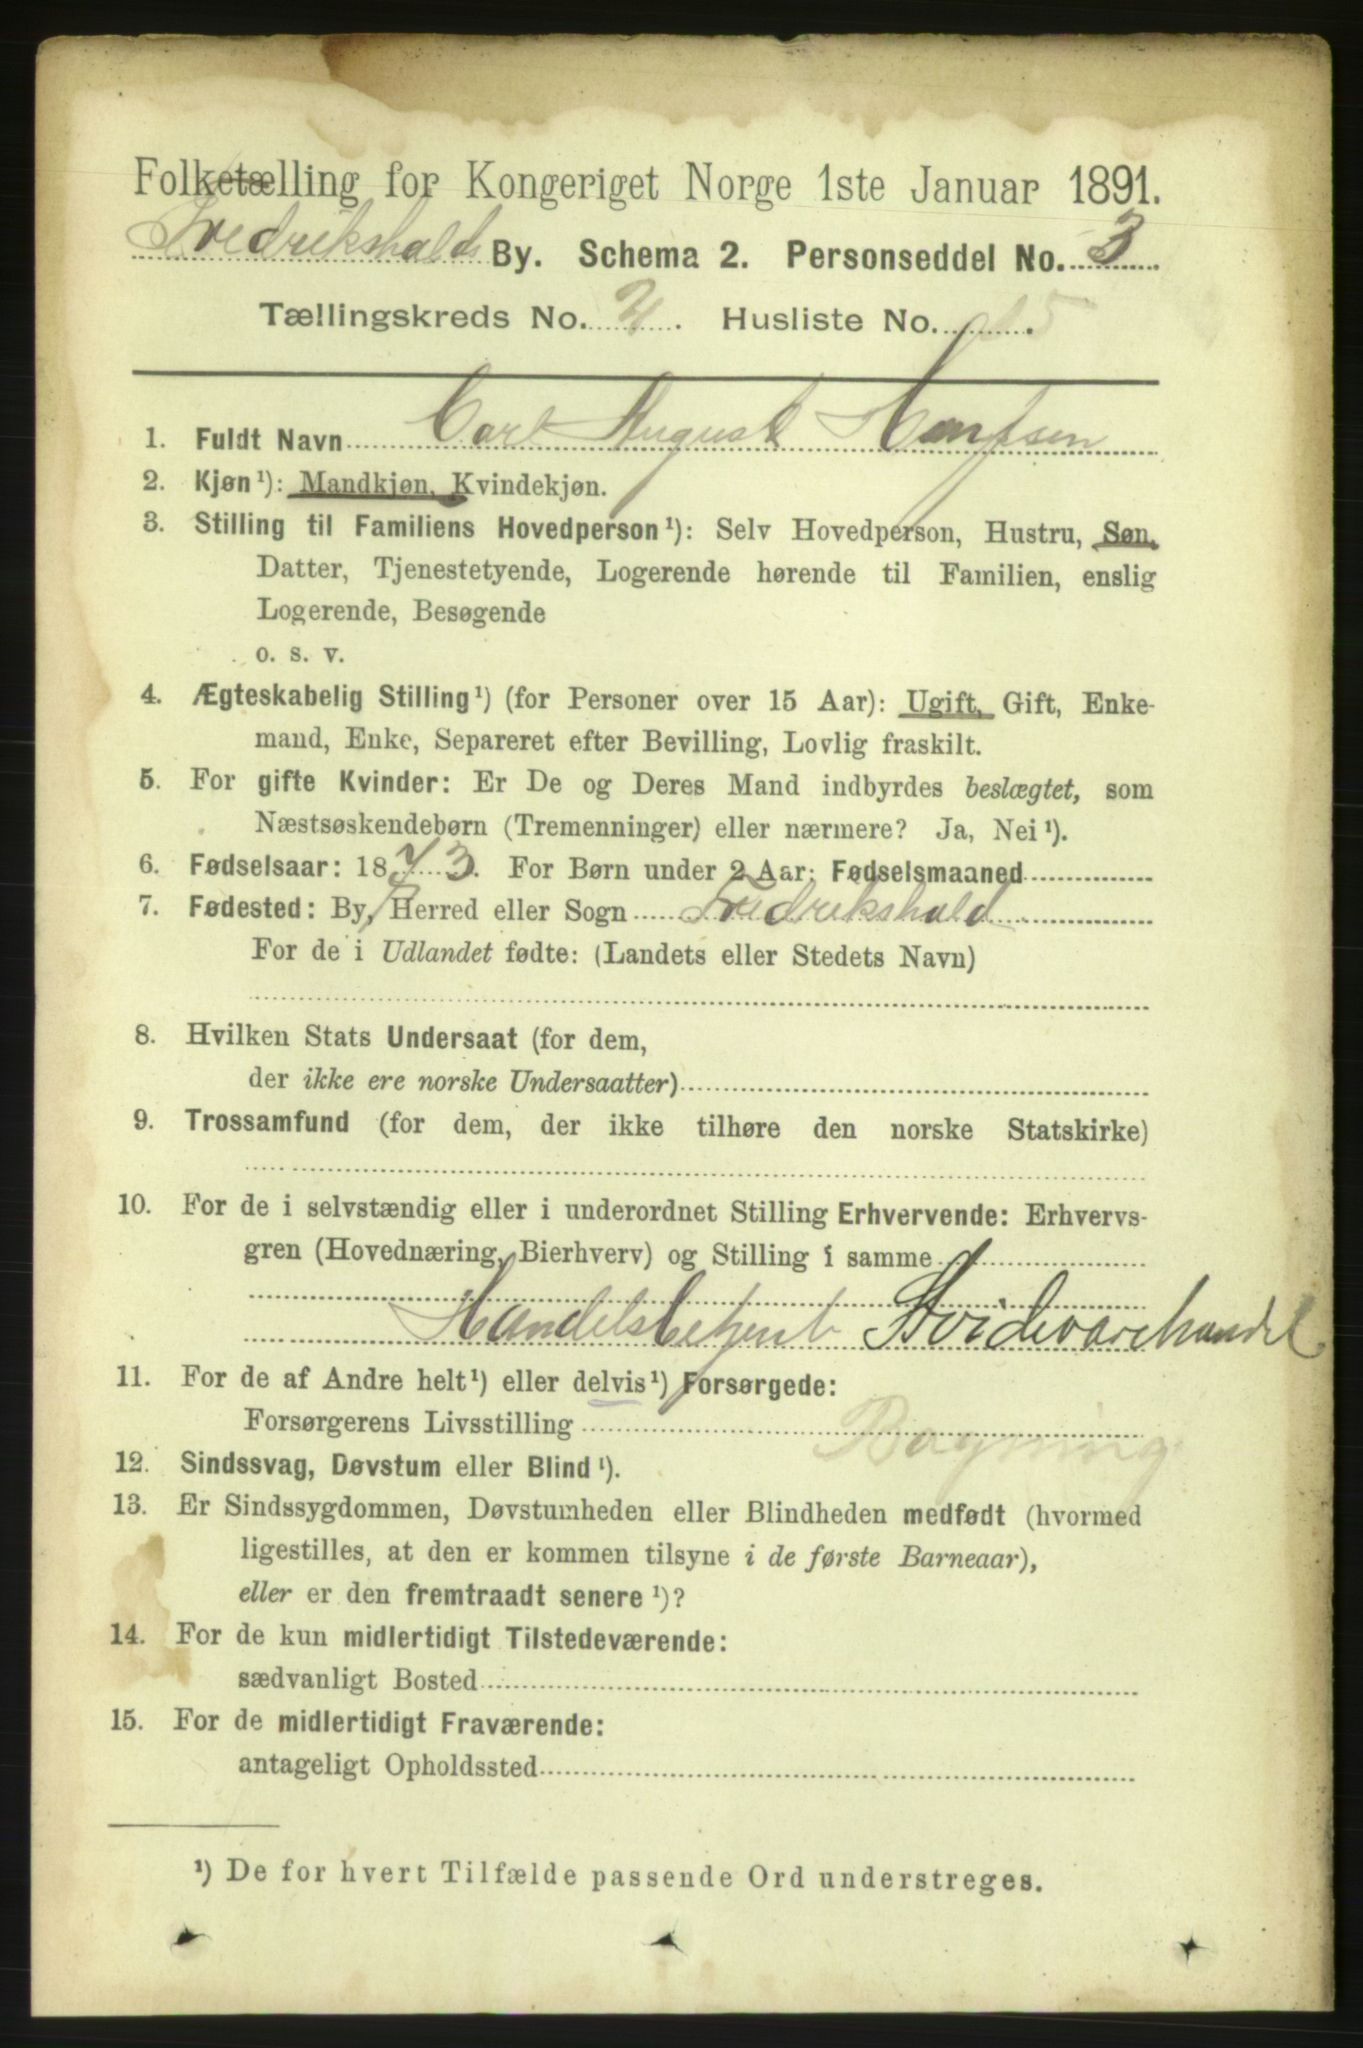 Folketælling for Kongeriget Norge 1ste Januar 1891.
Fredrikshalds By. Schema 2. Personseddel No. 3
Tællingskreds No. Husliste No.
1. Fuldt Navn Carl August Hansen
2. Kjøn¹): Mandkjøn, Kvindekjøn.
3. Stilling til Familiens Hovedperson¹): Selv Hovedperson, Hustru, Søn,
Datter, Tjenestetyende, Logerende hørende til Familien, enslig
Logerende, Besøgende
o. s. v.
4. Ægteskabelig Stilling¹) (for Personer over 15 Aar): Ugift, Gift, Enke-
mand, Enke, Separeret efter Bevilling, Lovlig fraskilt.
5. For gifte Kvinder: Er De og Deres Mand indbyrdes beslægtet, som
Næstsøskendebørn (Tremenninger) eller nærmere? Ja, Nei¹).
6. Fødselsaar: 1873. For Børn under 2 Aar: Fødselsmaaned
7. Fødested: By, Herred eller Sogn Fredrikshald
For de i Udlandet fødte: (Landets eller Stedets Navn)
8. Hvilken Stats Undersaat (for dem,
der ikke ere norske Undersaatter)
9. Trossamfund (for dem, der ikke tilhøre den norske Statskirke)
10. For de i selvstændig eller i underordnet Stilling Erhvervende: Erhvervs-
gren (Hovednæring, Bierhverv) og Stilling i samme
Handelsbetjent Hvidevarehandel
11. For de af Andre helt¹) eller delvis¹) Forsørgede:
Forsørgerens Livsstilling
12. Sindssvag, Døvstum eller Blind¹).
13. Er Sindssygdommen, Døvstumheden eller Blindheden medfødt (hvormed
ligestilles, at den er kommen tilsyne i de første Barneaar),
eller er den fremtraadt senere¹)?
14. For de kun midlertidigt Tilstedeværende:
sædvanligt Bosted
15. For de midlertidigt Fraværende:
antageligt Opholdssted
¹) De for hvert Tilfælde passende Ord understreges.